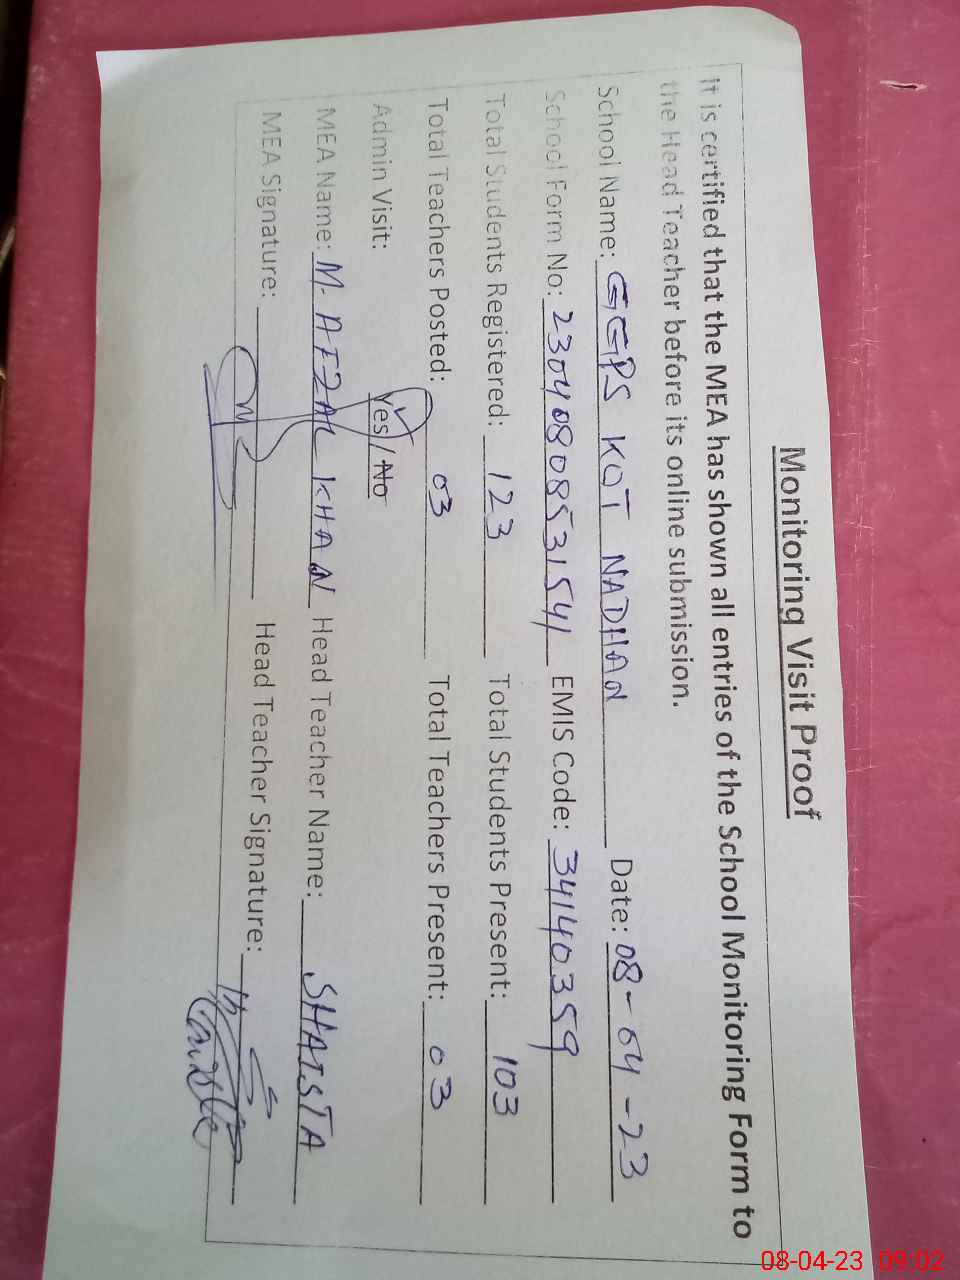 Monitoring Visit Proof
It is certified that the MEA has shown all entries of the School Monitoring Form to
the Head Teacher before its online submission.
School Name: GGPS KOT NADHAN Date: 08-04-23
School Form No: 23040808531541 EMIS Code: 34140359
Total Students Registered: 123 Total Students Present: 103
Total Teachers Posted: 03 Total Teachers Present: 03
Admin Visit: Yes / No
MEA Name: M. AFZAL KHAN Head Teacher Name: SHAISTA
MEA Signature: Head Teacher Signature:
08-04-23 09:02